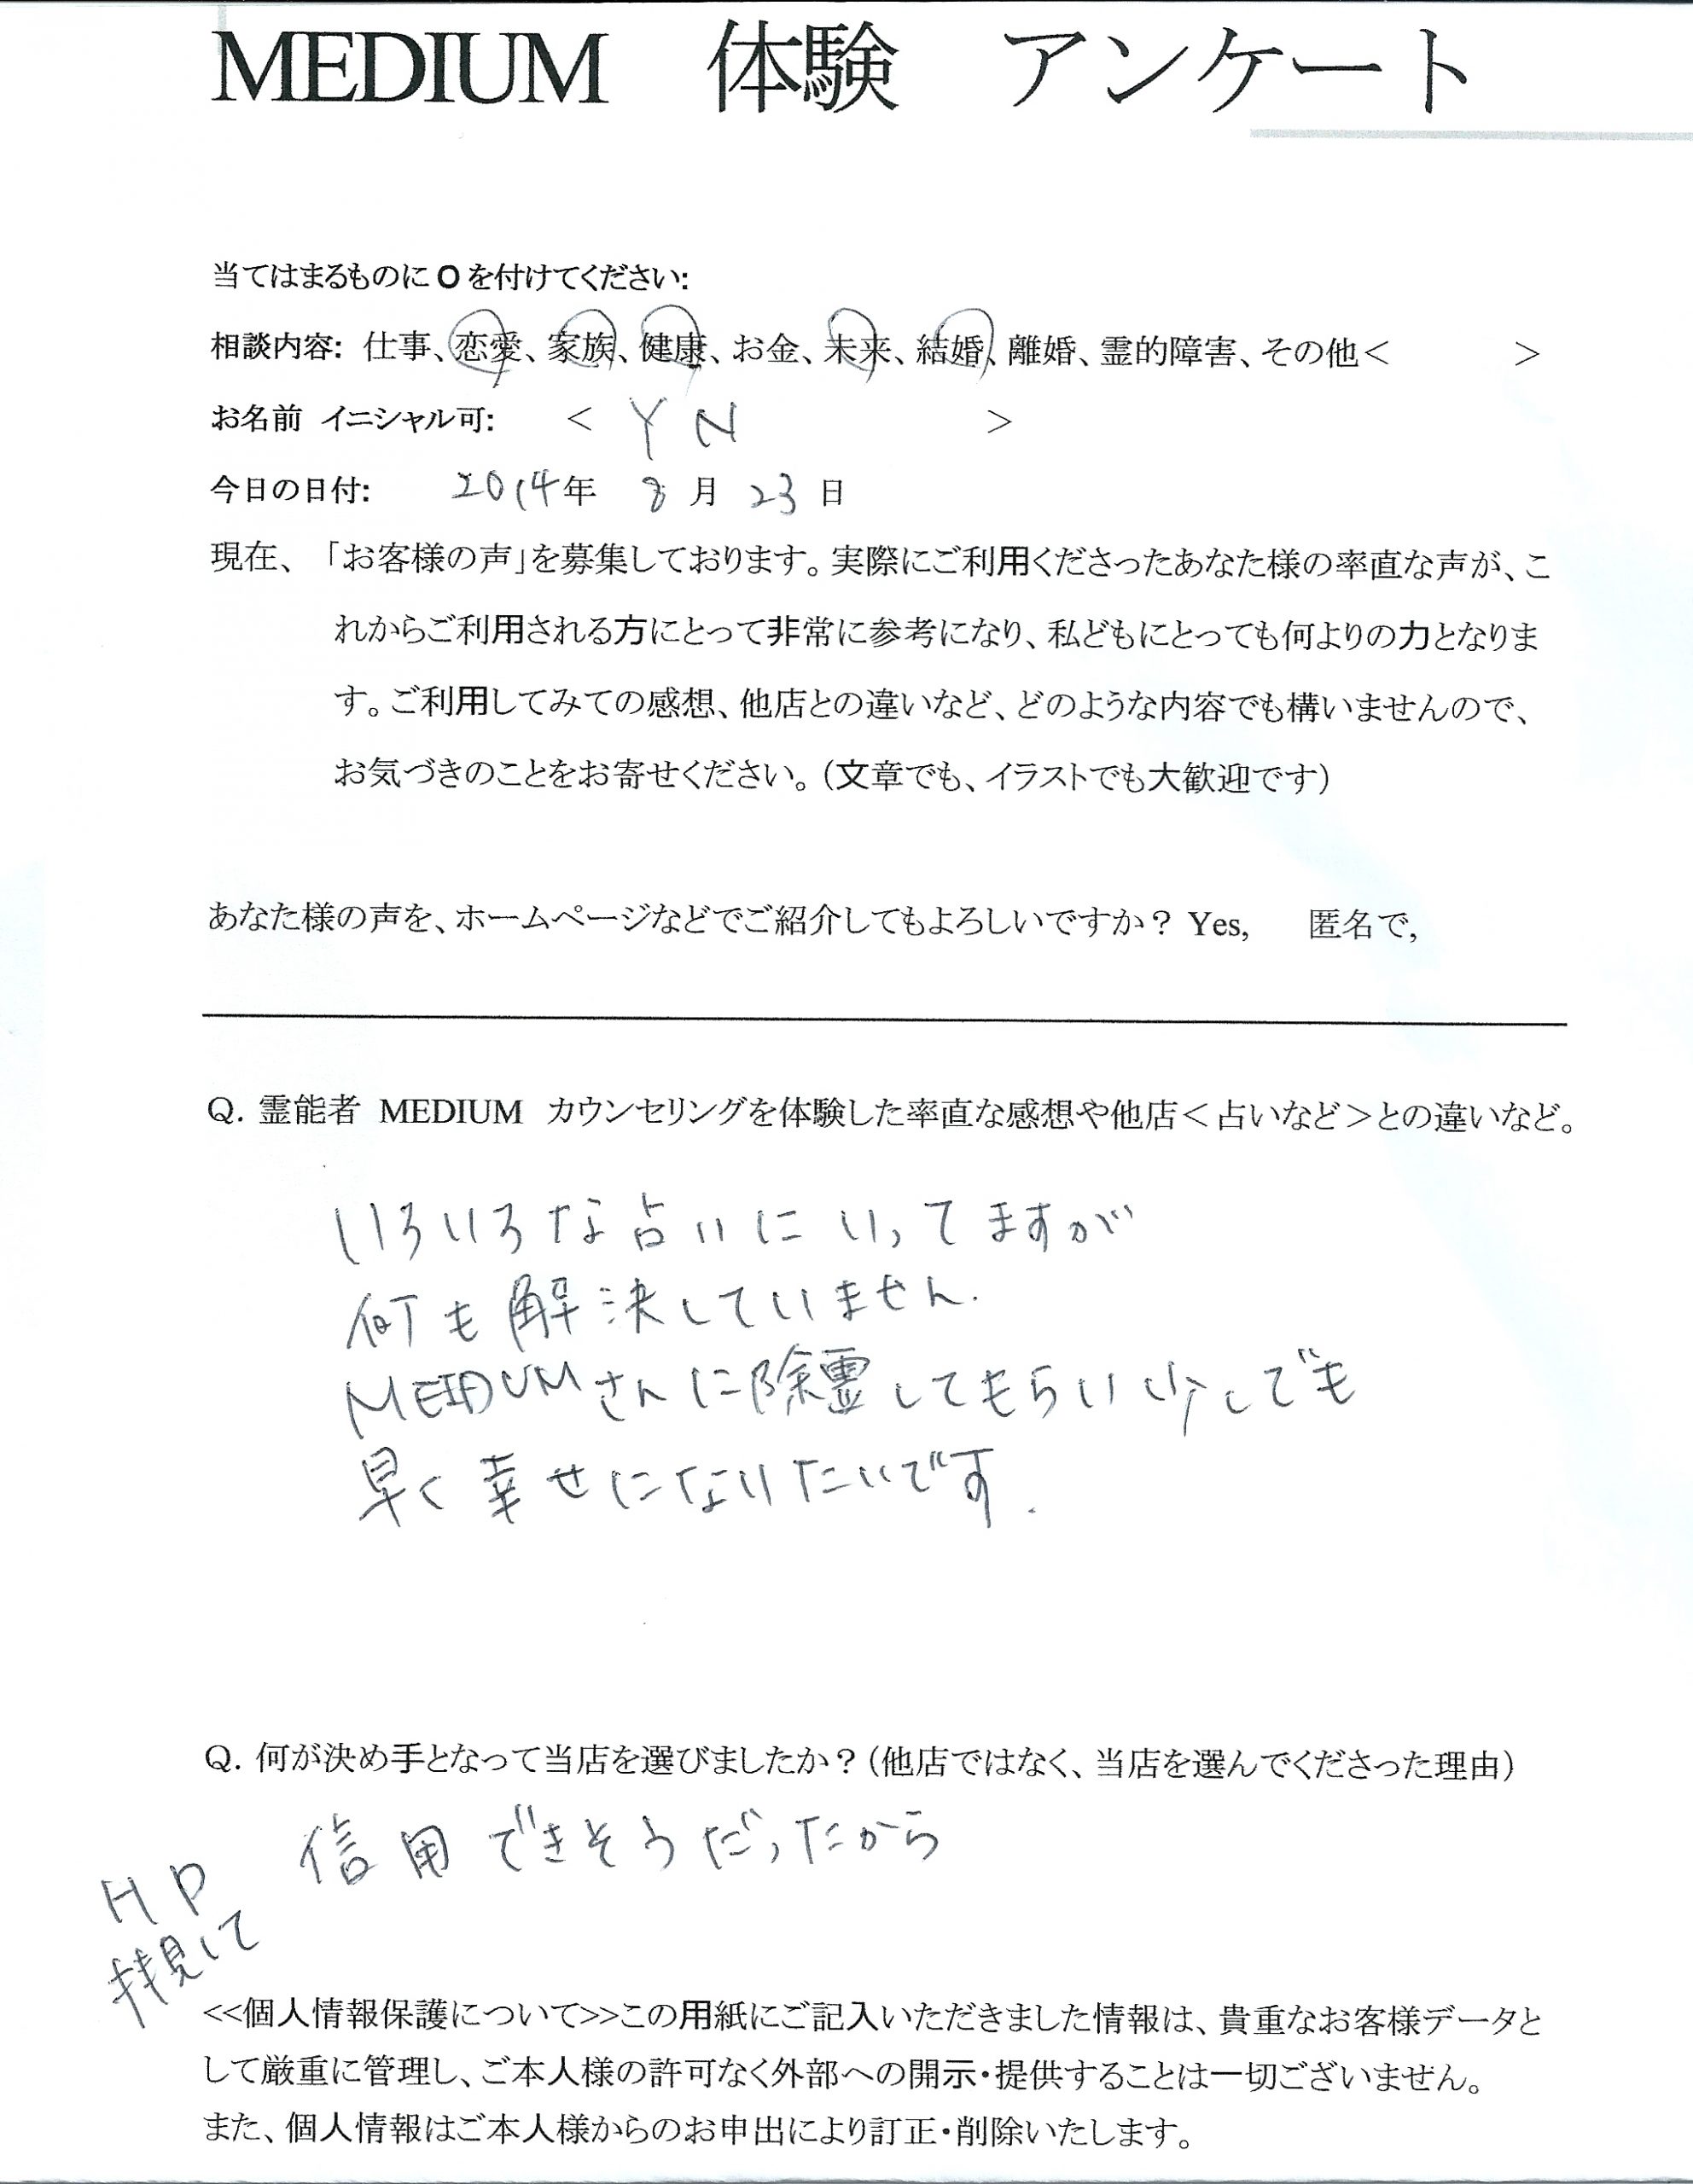 MEDIUM 体験 アンケート
当てはまるものにOを付けてください:
相談内容: 仕事、恋愛、家族、健康、お金、未来、結婚、離婚、霊的障害、その他< >
お名前 イニシャル可: < Y N >
今日の日付: 2014年 8月 23日
現在、「お客様の声」を募集しております。実際にご利用くださったあなた様の率直な声が、こ
れからご利用される方にとって非常に参考になり、私どもにとっても何よりの力となりま
す。ご利用してみての感想、他店との違いなど、どのような内容でも構いませんので、
お気づきのことをお寄せください。(文章でも、イラストでも大歓迎です)
あなた様の声を、ホームページなどでご紹介してもよろしいですか? Yes, 匿名で,
Q. 霊能者 MEDIUM カウンセリングを体験した率直な感想や他店<占いなど>との違いなど。
いろいろな占いにいってますが
何も解決していません.
MEIDUMさんに除霊してもらい少しでも
早く幸せになりたいです.
Q. 何が決め手となって当店を選びましたか?(他店ではなく、当店を選んでくださった理由)
信用できそうだったから
HP
拝見して
<<個人情報保護について>>この用紙にご記入いただきました情報は、貴重なお客様データと
して厳重に管理し、ご本人様の許可なく外部への開示・提供することは一切ございません。
また、個人情報はご本人様からのお申出により訂正・削除いたします。